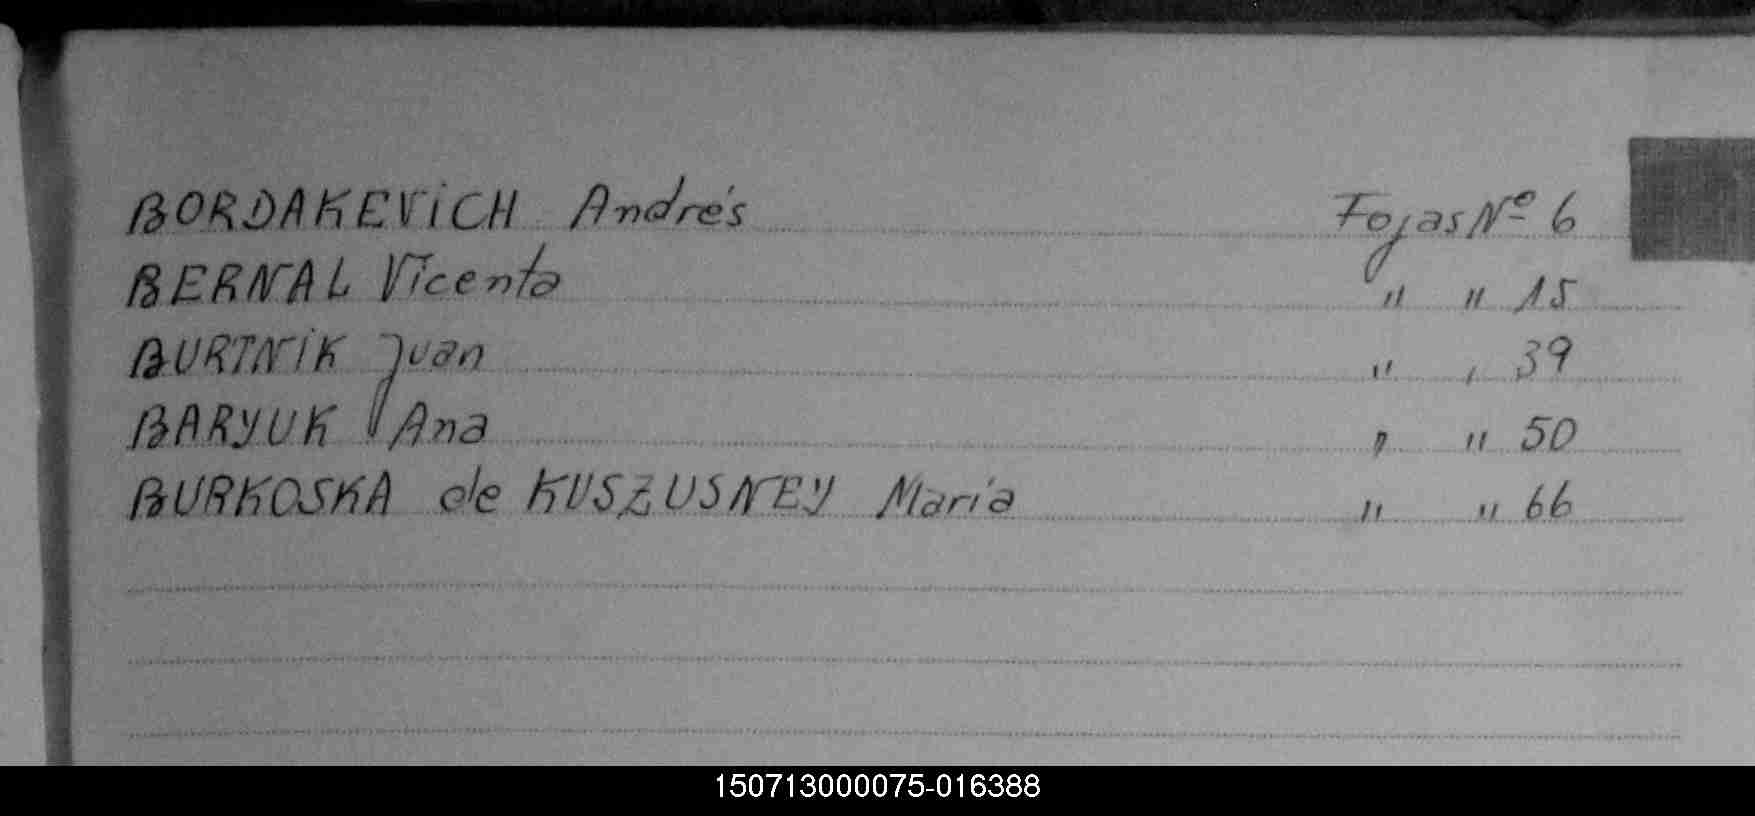 BORDAKEVICH Andrés Fojas Nº 6
BERNAL Vicenta " " 15
BURTNIK Juan " , 39
BARYUK Ana " " 50
BURKOSKA de KUSZUSNEY María " " 66
150713000075-016388